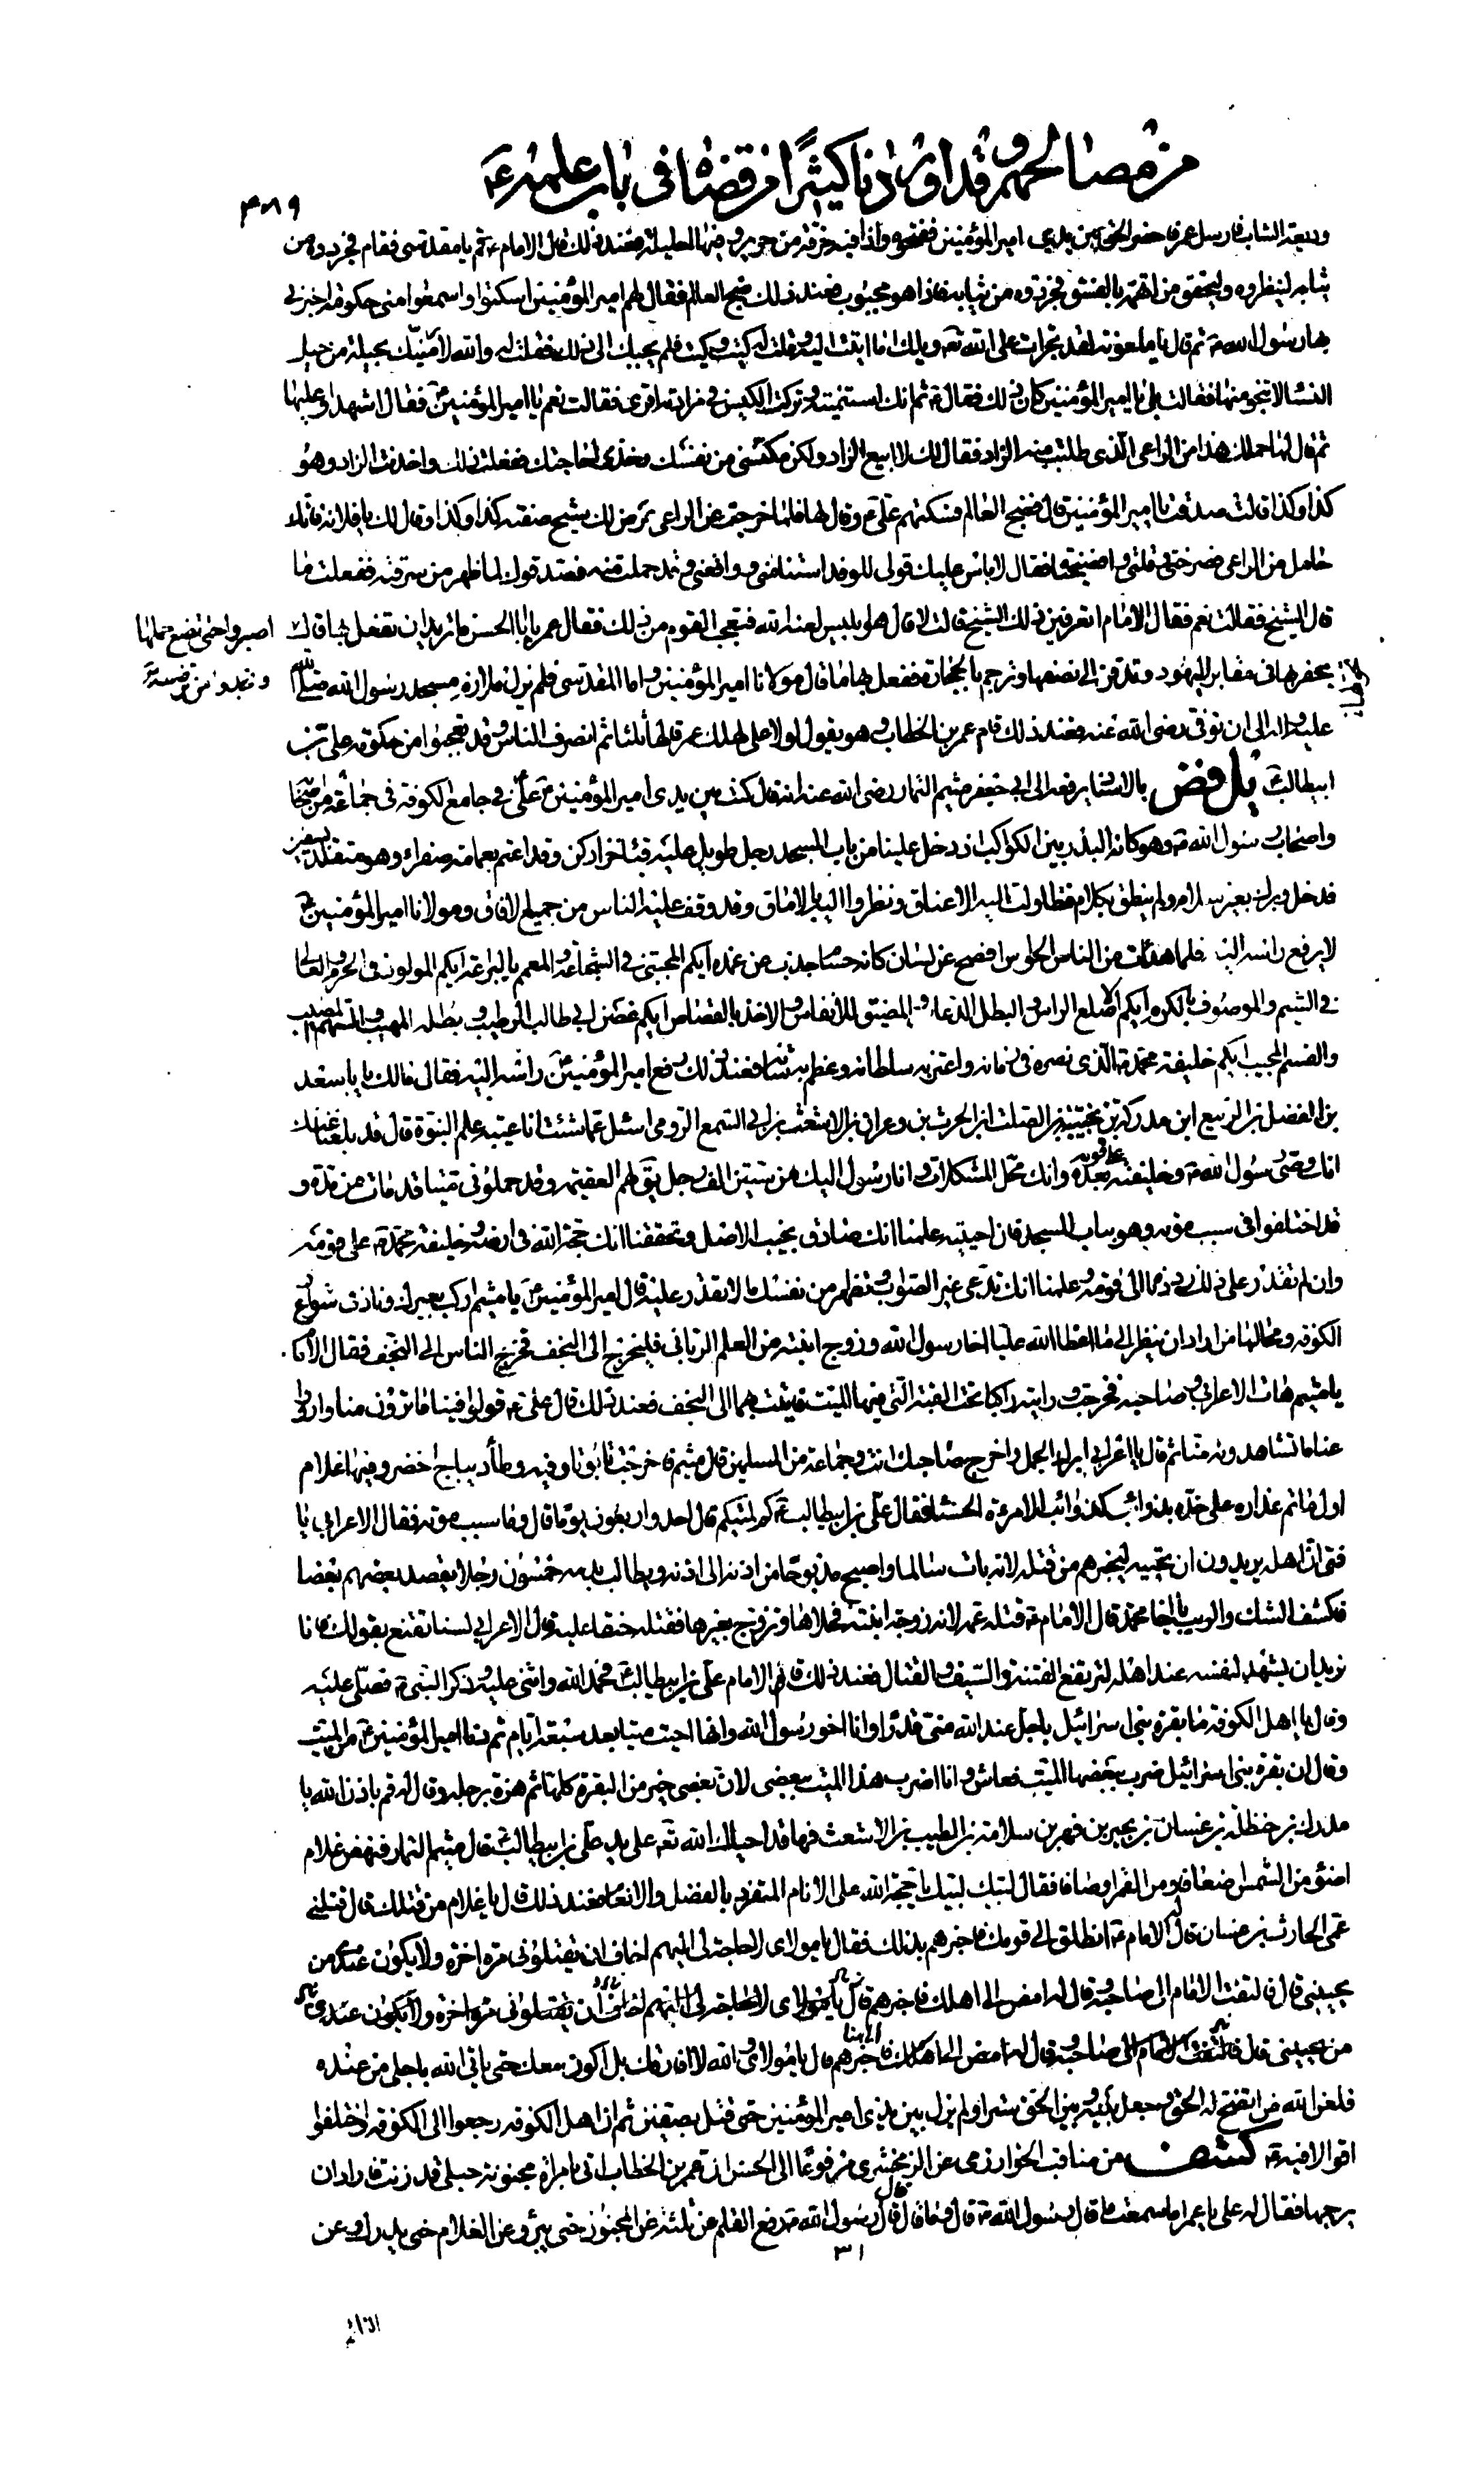 من مصالحهم وقد اوردنا كثيرا من قضاياه في باب علمه ع
٣٨٩
وديعة الشاب فارسل عمر فاحضر الخرج بين يدي امير المؤمنين ففتحوه واذا فيه خرقة من حرير وفيها الحلية فعند ذلك قال الامام ع قم يا مقدسى فقام فجردوه من
ثيابه لينظروه وليحقق من اتهمه بالفسق فجردوه من ثيابه فاذا هو مجبوب فعند ذلك ضج العالم فقال لهم امير المؤمنين اسكتوا واسمعوا منى حكومة اخبرني
بها رسول الله ص ثم قال يا ملعونة لقد تجرات على الله تع ويلك اما اتيت اليه وقلت له كيت وكيت فلم يجبك الى ذلك فقلت له والله لارمينك بحيلة من حيل
النسا لا تنجو منها فقالت بلى يا امير المؤمنين كان ذلك فقال ع ثم انك استنمتيه وتركت الكيس في مزادته اقرى فقالت نعم يا امير المؤمنين فقال اشهدوا عليها
ثم قال لها حملك هذا من الراعى الذى طلبت منه الزاد فقال لك لا ابيع الزاد ولكن مكنينى من نفسك وخذى لحاجتك ففعلت ذلك واخذت الزاد وهو
كذا وكذا قالت صدقت يا امير المؤمنين قال فضج العالم فسكتهم على ع وقال لها فلما خرجت عن الراعى عرض لك شيخ صفته كذا وكذا وقال لك يا فلانة فانك
حامل من الراعى فصرختى وقلتى وا فضيحتاه فقال لا باس عليك قولى للوفد استنامنى وواقعنى وقد حملت منه فصدقوك لما ظهر من سرقته ففعلت ما
قال الشيخ فقالت نعم فقال الامام اتعرفين ذلك الشيخ قالت لا قال هو ابليس لعنه الله فتعجب القوم من ذلك فقال عمر يا ابا الحسن ما تريد ان تفعل بها قال
اصبروا حتى تضع حملها
وتجدوا من ترضعه
يحفر لها في مقابر اليهود وتدفن الى نصفها وترجم بالحجارة ففعل بها ما قال مولانا امير المؤمنين واما المقدسى فلم يزل ملازم مسجد رسول الله صلى الله
عليه واله الى ان توفى رضى الله عنه فعند ذلك قام عمر بن الخطاب وهو يقول لولا على لهلك عمر قالها ثلثا ثم انصرف الناس وقد تعجبوا من حكومة على بن
ابيطالب يل فض بالاسناد يرفعه الى ابي جعفر ميثم التمار رضى الله عنه انه قال كنت بين يدى امير المؤمنين على في جامع الكوفة في جماعة من اصحابه
واصحاب رسول الله ص وهو كانه البدر بين الكواكب اذ دخل علينا من باب المسجد رجل طويل عليه قباء خز ادكن وقد اعتم بعمامة صفراء وهو متقلد بسيفين
فدخل وبرك بغير سلام ولم ينطق بكلام فتطاولت اليه الاعناق ونظروا اليه بالاماق وقد وقف عليه الناس من جميع الافاق ومولانا امير المؤمنين ع
لا يرفع راسه اليه فلما هدات من الناس الحواس افصح عن لسان كانه حسام جذب من غمده ايكم المجتبى في الشجاعة والمعمم بالبراعة ايكم المولود في الحرم والعالى
في الشيم والموصوف بالكرم ايكم الاصلع الراس والبطل الدعاس والمضيق للانفاس والاخذ بالقصاص ايكم غصن ابي طالب الرطيب وبطله المهيب والسهم المصيب
والقسم المجيب ايكم خليفة محمد ص الذى نصره في زمانه واعتز به سلطانه وعظم به شانه فعند ذلك رفع امير المؤمنين راسه اليه فقال مالك يا با سعد
بن الفضل بن الربيع ابن مدركة بن نجيبة بن الصلت ابن الحرث بن وعران بن الاشعث بن ابي السمع الرومى اسئل عما شئت انا عيبة علم النبوة قال قد بلغنا عنك
انك وصى رسول الله ص وخليفته على قومه بعده وانك محل المشكلات وانا رسول اليك من ستين الف رجل يق لهم العقيمة وقد حملونى ميتا قد مات من مدة و
قد اختلفوا في سبب موته وهو بباب المسجد فان احييته علمنا انك صادق نجيب الاصل وتحققنا انك حجة الله في ارضه وخليفة محمد ص على قومه
وان لم تقدر على ذلك رددناه الى قومه وعلمنا انك تدعى غير الصواب وتظهر من نفسك ما لا تقدر عليه قال امير المؤمنين يا ميثم اركب بعيرك وناد في شوارع
الكوفة ومحالها من اراد ان ينظر الى ما اعطا الله عليا اخا رسول الله وزوج ابنته من العلم الربانى فليخرج الى النجف فخرج الناس الى النجف فقال الامام
يا ميثم هات الاعرابي وصاحبه فخرجت ورايته راكبا تحت القبة التى فيها الميت فاتيت بهما الى النجف فعند ذلك قال على ع قولوا فينا ما ترون منا وارووا
عنا ما تشاهدونه منا ثم قال يا اعرابي ابرك الجمل واخرج صاحبك انت وجماعة من المسلمين قال ميثم فاخرجت تابوتا وفيه وطأ ديباج اخضر وفيها غلام
اول ما تم عذاره على خده بذوائب كذوائب الامرءة الحسنا فقال على بن ابيطالب ع كم لميتكم قال احد واربعون يوما قال وما سبب موته فقال الاعرابي يا
فتى ان اهله يريدون ان تحييه ليخبرهم من قتله لانه بات سالما واصبح مذبوحا من اذنه الى اذنه ويطالب بدمه خمسون رجلا يقصد بعضهم بعضا
فاكشف الشك والريب يا اخا محمد قال الامام ع قتله عمه لانه زوجه ابنته فخلاها وتزوج بغيرها فقتله حنقا عليه قال الاعرابي لسنا نقنع بقولك فانا
نريد ان يشهد لنفسه عند اهله لترتفع الفتنة والسيف والقتال فعند ذلك قام الامام على بن ابيطالب ع فحمد الله واثنى عليه وذكر النبي ص فصلى عليه
وقال يا اهل الكوفة ما بقرة بنى اسرائيل باجل عند الله منى قدرا وانا اخو رسول الله وانها احيت ميتا بعد سبعة ايام ثم دنا امير المؤمنين ع من الميت
وقال ان بقرة بنى اسرائيل ضرب ببعضها الميت فعاش وانا اضرب هذا الميت ببعضى لان بعضى خير من البقرة كلها ثم هزه برجله وقال له قم باذن الله يا
مدرك بن حنظلة بن غسان بن بحير بن فهر بن سلامة بن الطيب بن الاشعث فها قد احياك الله تع على يد على بن ابيطالب ع قال ميثم التمار فنهض غلام
اضوء من الشمس اضعافا ومن القمر اوصافا فقال لبيك لبيك يا حجة الله على الانام المتفرد بالفضل والانعام فعند ذلك قال يا غلام من قتلك قال قتلنى
عمى الحارث بن غسان قال له الامام ع انطلق الى قومك فاخبرهم بذلك فقال يا مولاى لا حاجة لى اليهم اخاف ان يقتلونى مرة اخرة ولا يكون عندى من
يحيينى قال فالتفت الامام الى صاحبه وقال له امض الى اهلك فاخبرهم قال يا مولاى لا حاجة لى اليهم اخاف ان يقتلونى مرة اخرة ولا يكون عندى
من يحيينى قال فالتفت الامام الى صاحبه وقال له امض الى اهلك فاخبرهم قال يا مولاى والله لا افارقك بل اكون معك حتى ياتى الله باجلى من عنده
فلعن الله من اتضح له الحق وجعل بينه وبين الحق سترا ولم يزل بين يدى امير المؤمنين حتى قتل بصفين ثم ان اهل الكوفة رجعوا الى الكوفة واختلفوا
اقوالا فيه ع كشف من مناقب الخوارزمى عن الزمخشرى مرفوعا الى الحسن ان عمر بن الخطاب اتى بامراة مجنونة حبلى قد زنت فاراد ان
يرجمها فقال له على يا عمر اما سمعت ما قال رسول الله ص قال وما قال قال قال رسول الله ص رفع القلم عن ثلثة عن المجنون حتى يبرؤ وعن الغلام حتى يدرك وعن
٣١
النائم